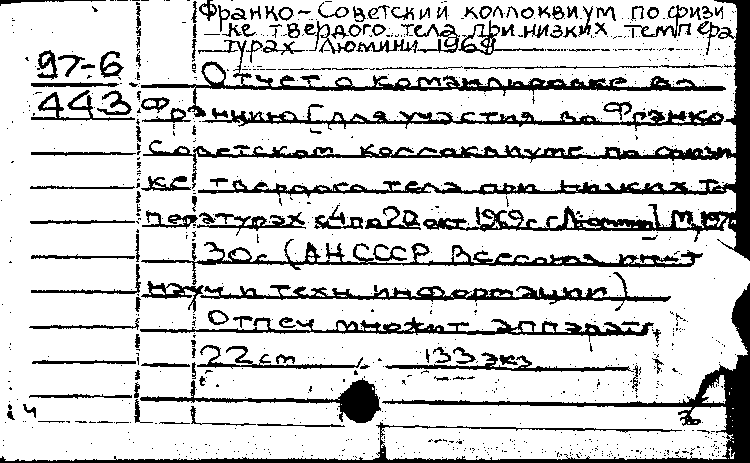 Франко-Советский коллоквиум по физи
ке твердого тела при низких темпера
турах Люмини 1969
97-6
Отчет о командировке во
443
Францию [для участия во Франко-
Советском коллоквиуме по физи
ке твердого тела при низких Тем
пературах с 4 по 20 окт 1969 г. г Люмини] М, 1970
30с (АН СССР. Всесоюзн инст
науч и техн информации)
Отпеч множит аппарат
22 cm 133 экз